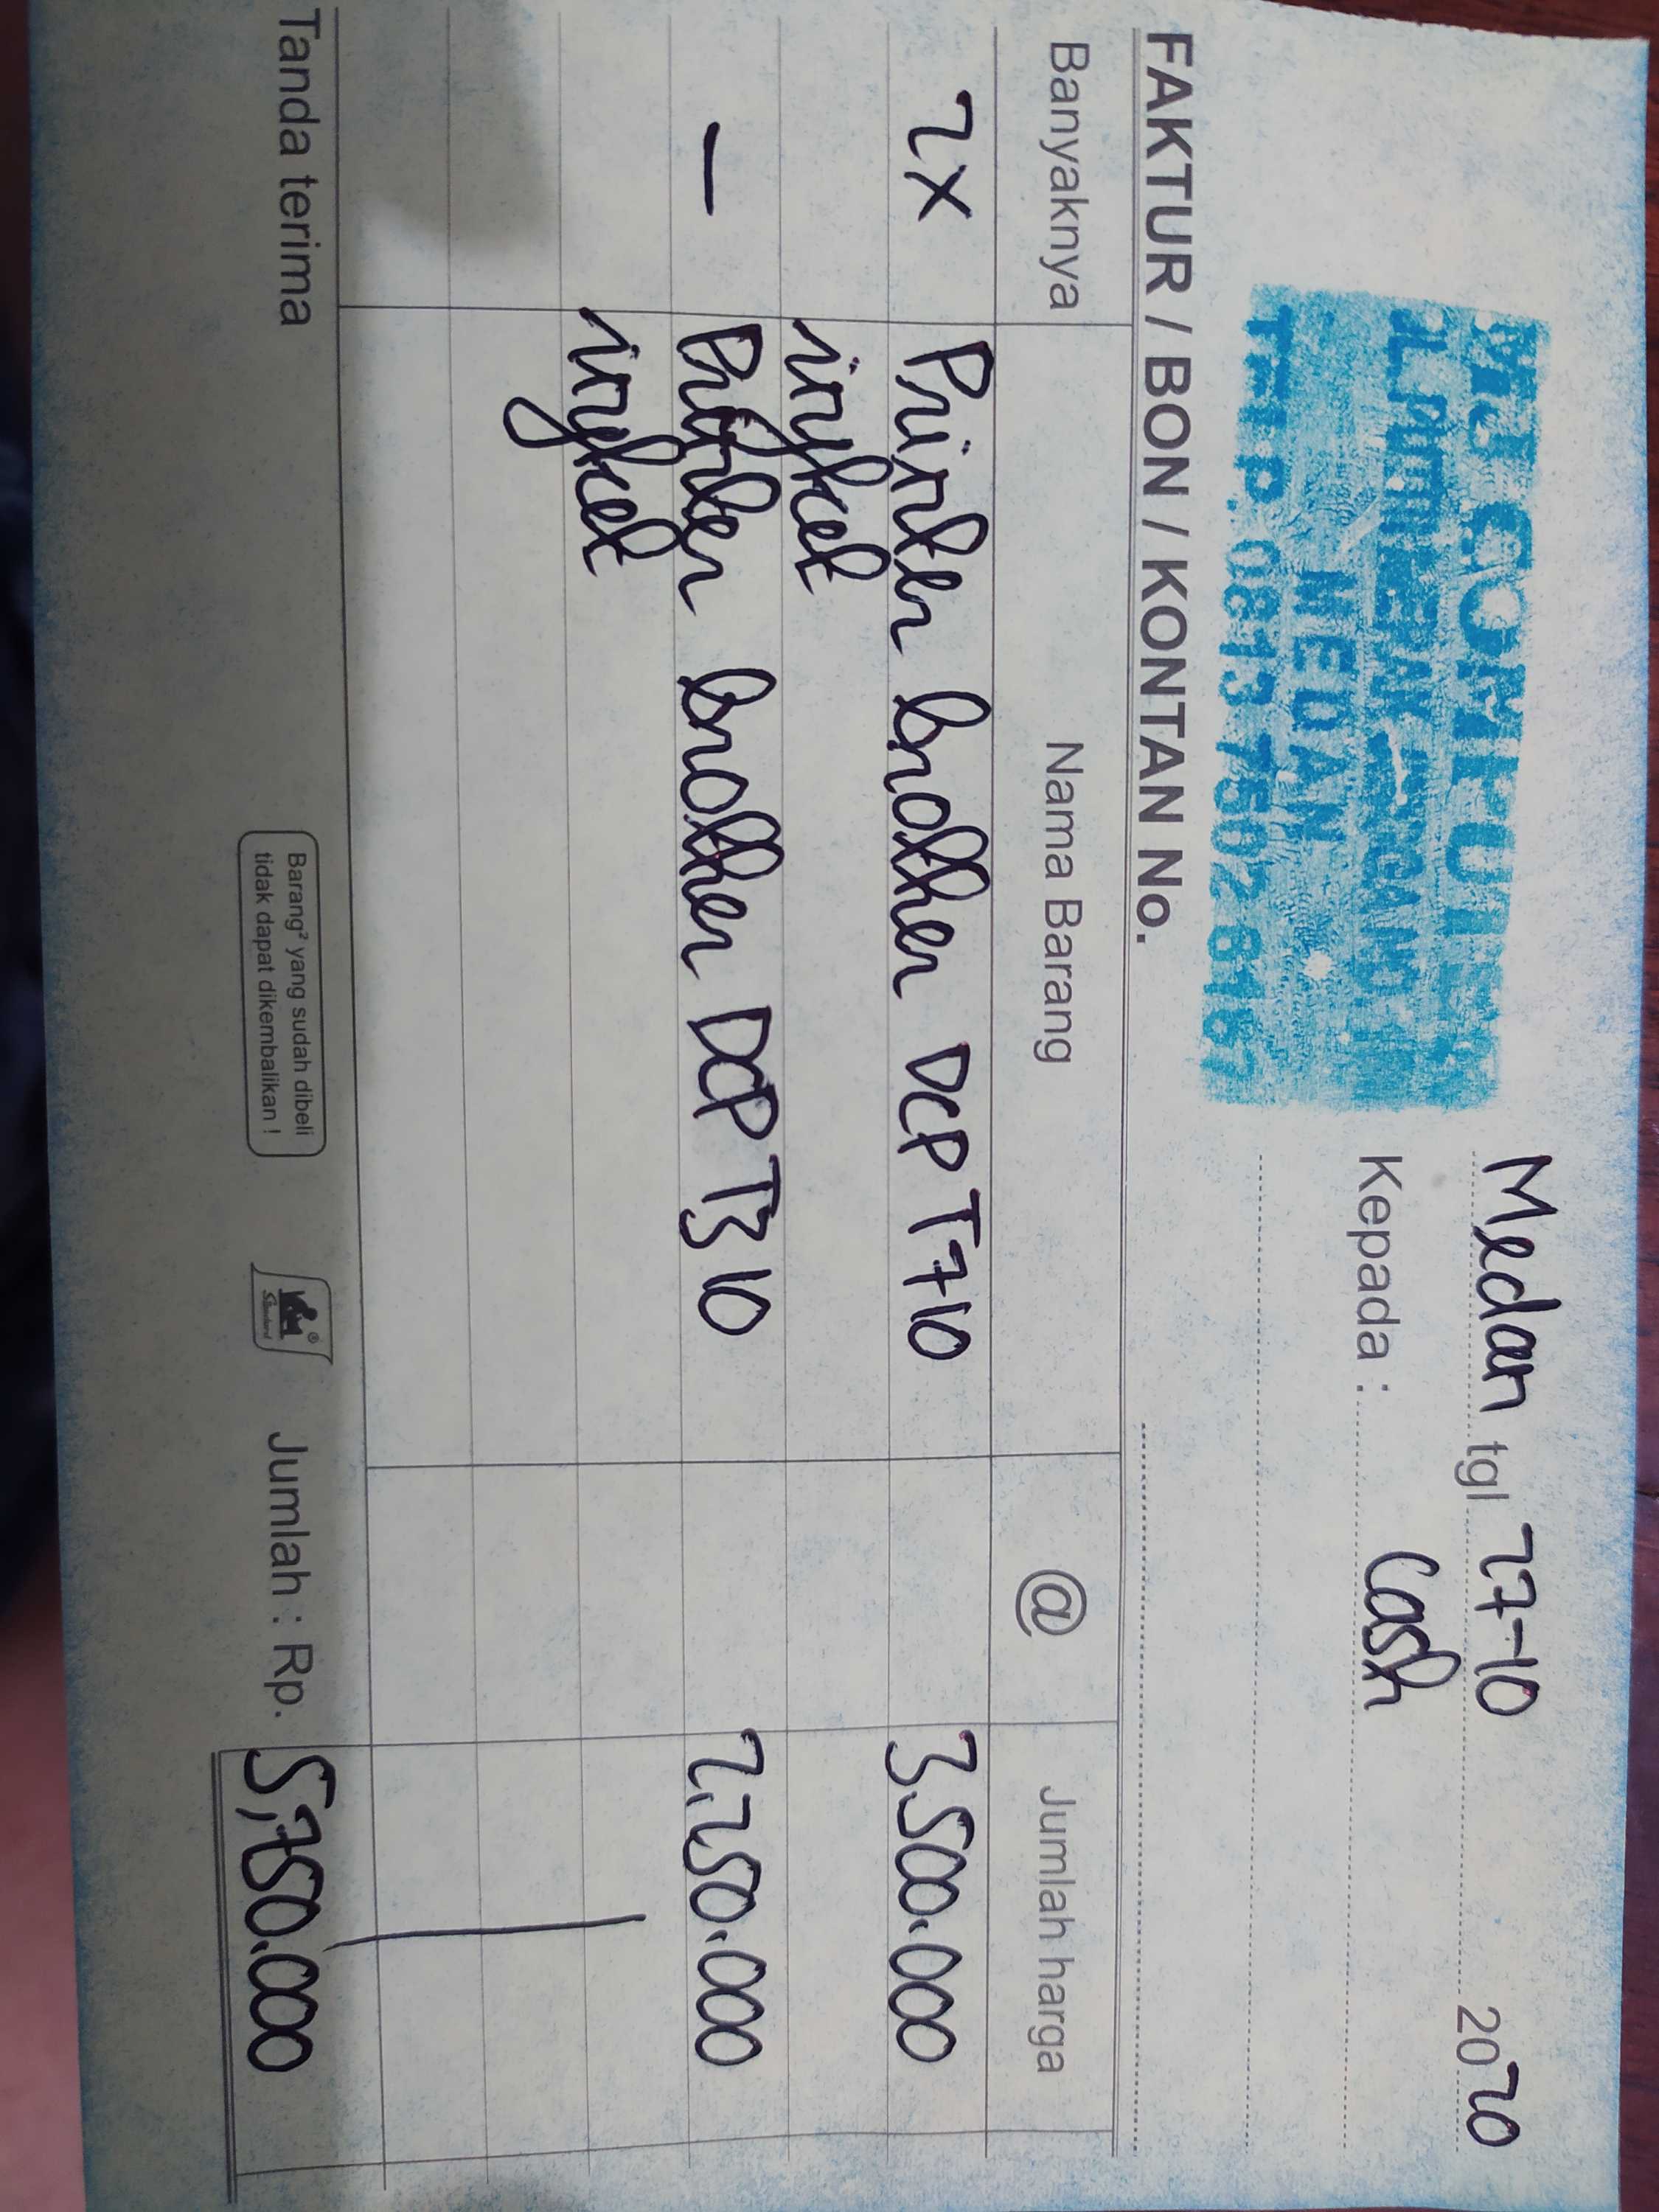 COMPUTER
MEDAN
TELP. 0813 7502 8167
Medan tgl 27-10 2020
Kepada : Cash
FAKTUR / BON / KONTAN No.
Banyaknya Nama Barang @ Jumlah harga
2x Printer brother DCP T710 3.500.000
inyket
1 Printer brother DCP T310 2.250.000
inyket
Tanda terima
Barang² yang sudah dibeli
tidak dapat dikembalikan !
Jumlah : Rp. 5,750.000